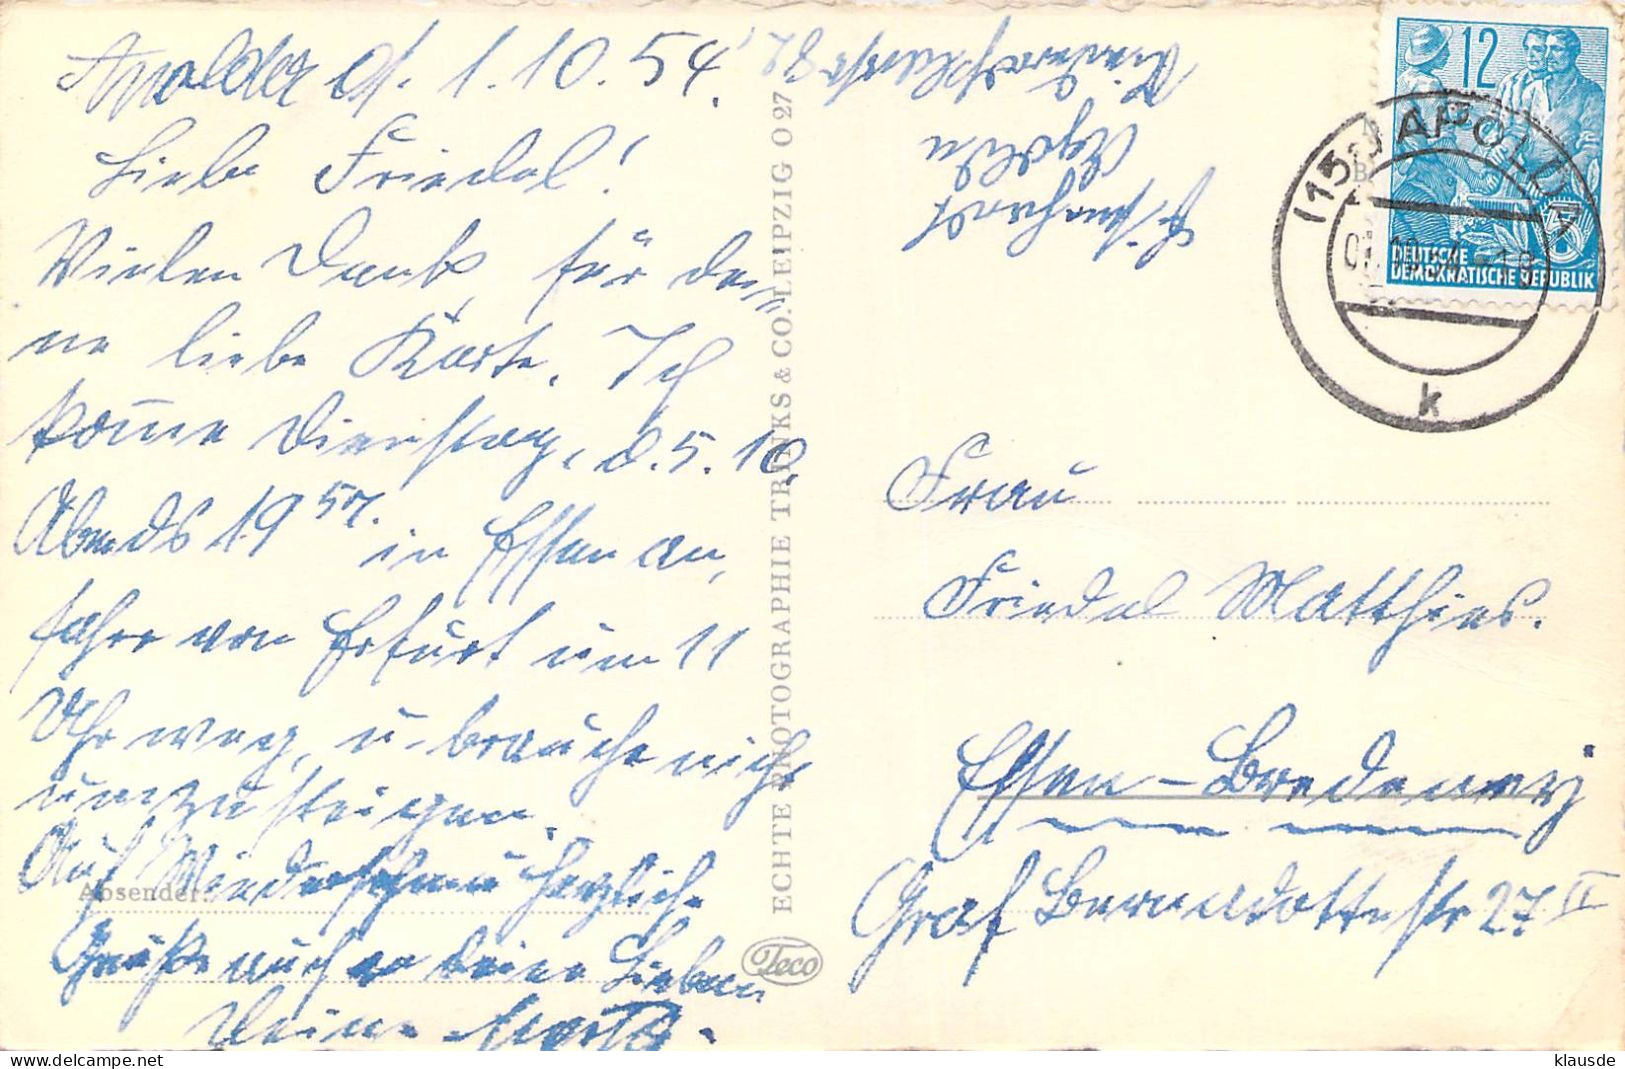 Apolda, d. 1.10.54.
Liebe Friedel!
Vielen Dank, für dei-
ne liebe Karte. Ich
kom̅e Dienstag, d. 5.10.
Abends 19 57. in Essen an,
fahre von Erfurt um 11
Uhr weg, u. brauche nicht
umzusteigen.
Auf Wiedersehn u. herzlich.
Absender:
Grüße auch an deine Lieben
Deine
ECHTE PHOTOGRAPHIE TRINKS & CO. LEIPZIG O 27
Teco
Apolda
12
DEUTSCHE
DEMOKRATISCHE REPUBLIK
(15a) APOLDA
k
Frau
Friedel Matthies.
Essen-Bredeney
Graf Bernadottestr 27 II
klausde
delcampe.net